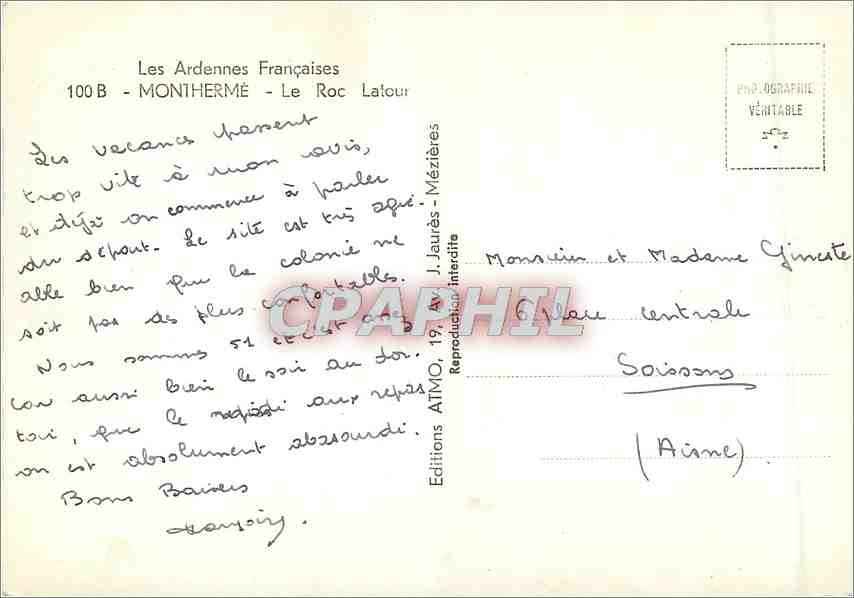 Les Ardennes Françaises
100 B - MONTHERMÉ - Le Roc Latour
Les vacances passent
trop vite à mon avis,
et déjà on commence à parler
du départ. Le site est très agré-
able bien que la colonie ne
soit pas des plus confortables.
Nous sommes 51 et c'est assez
car aussi bien le soir au dor.
toir, que le midi aux repas
on est absolument abasourdi.
Bons Baisers
Editions ATMO, 19, Av. J. Jaurès - Mézières
Reproduction interdite
PHOTOGRAPHIE
VÉRITABLE
Monsieur et Madame Gineste
6 place centrale
Soissons
(Aisne)
CPAPHIL